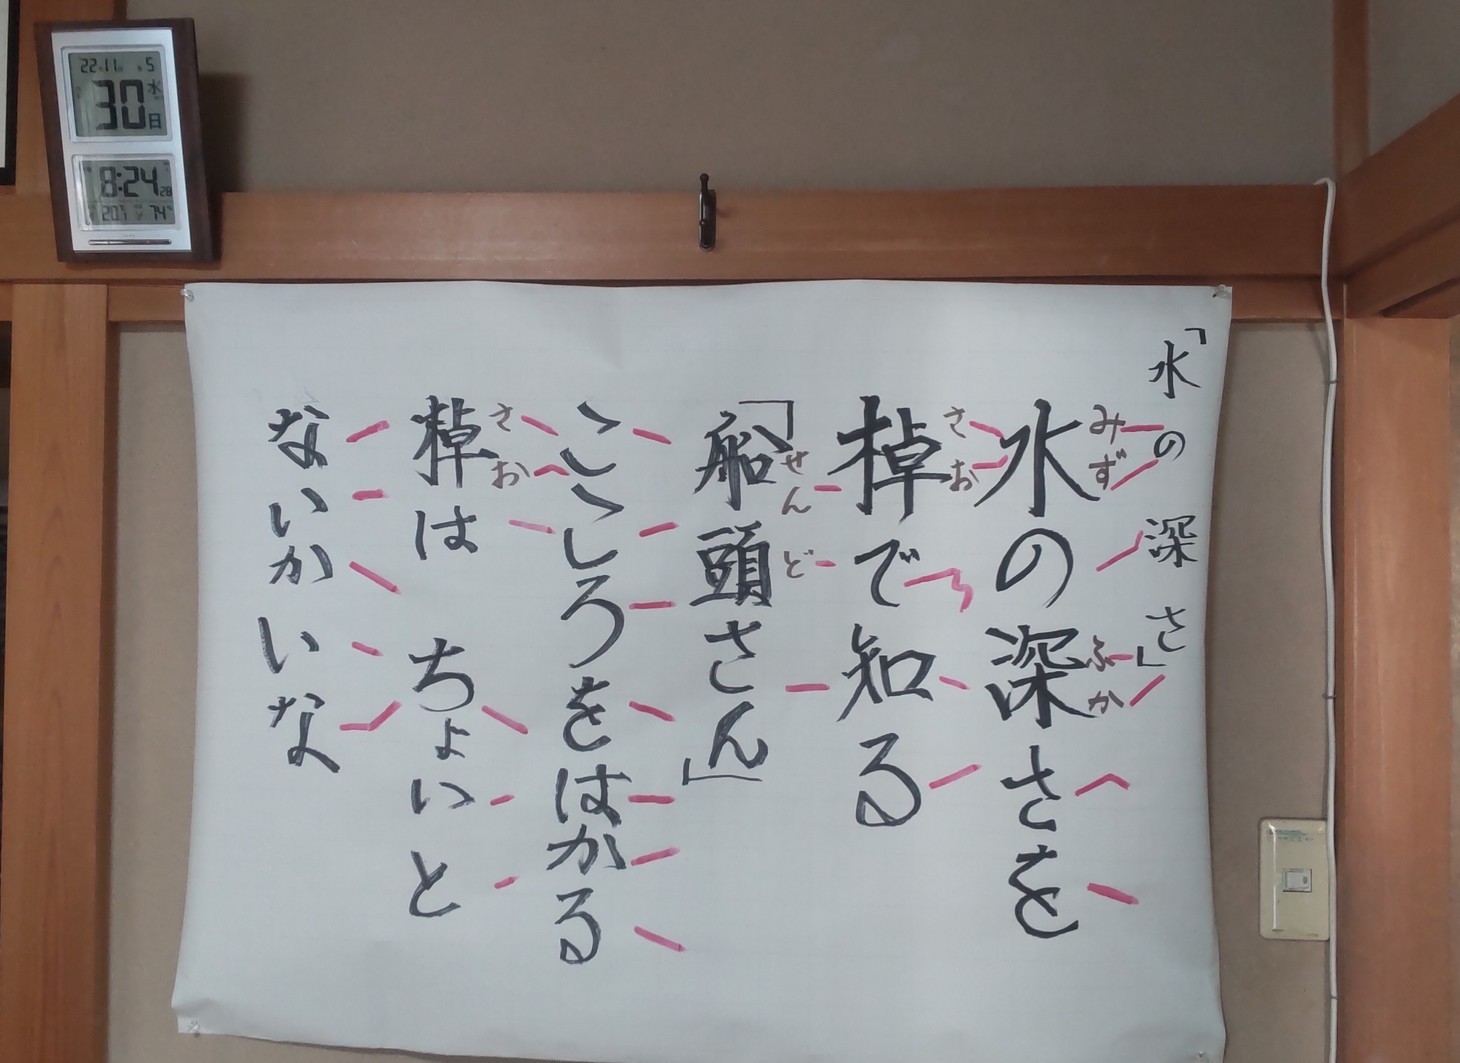 22 11 5
30 水
日
8:24 28
74
「水の深さ」
みず ふか
水の深さを
さお
棹で知る
せんど
「船頭さん」
こころをはかる
さお
棹は ちょいと
ないかいな